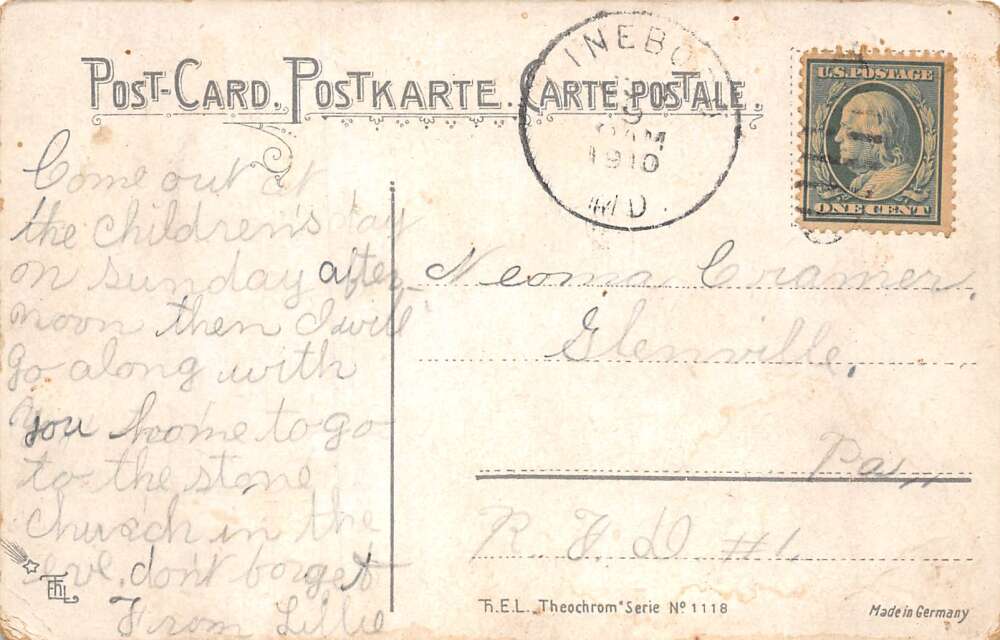 POST-CARD. POSTKARTE. CARTE POSTALE.
INEBO
9
M
1910
MD.
U.S. POSTAGE
ONE CENT
Come out at
the children's day
on sunday after-
noon then I will
go along with
you home to go
to the stone
church in the
eve, don't forget
From Lillie
Neoma Cramer.
Glenville,
Pa,,
R. F. D #1.
ThEL
Th.E.L. „Theochrom" Serie Nº 1118
Made in Germany